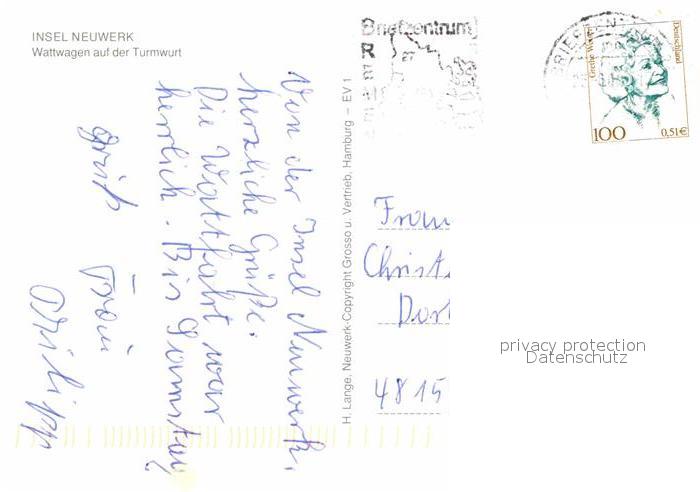 INSEL NEUWERK
Wattwagen auf der Turmwurt
Von der Insel Neuwerk,
herzliche Grüße.
Die Wattfahrt war
herrlich. Bis Samstag
Gruß
Frau
Philipp
H. Lange, Neuwerk-Copyright Grosso u. Vertrieb, Hamburg – EV 1
Briefzentrum
27
BRIEFZEN
Deutschland
100
0,51€
Frau
Christ
Dor
4815
privacy protection
Datenschutz